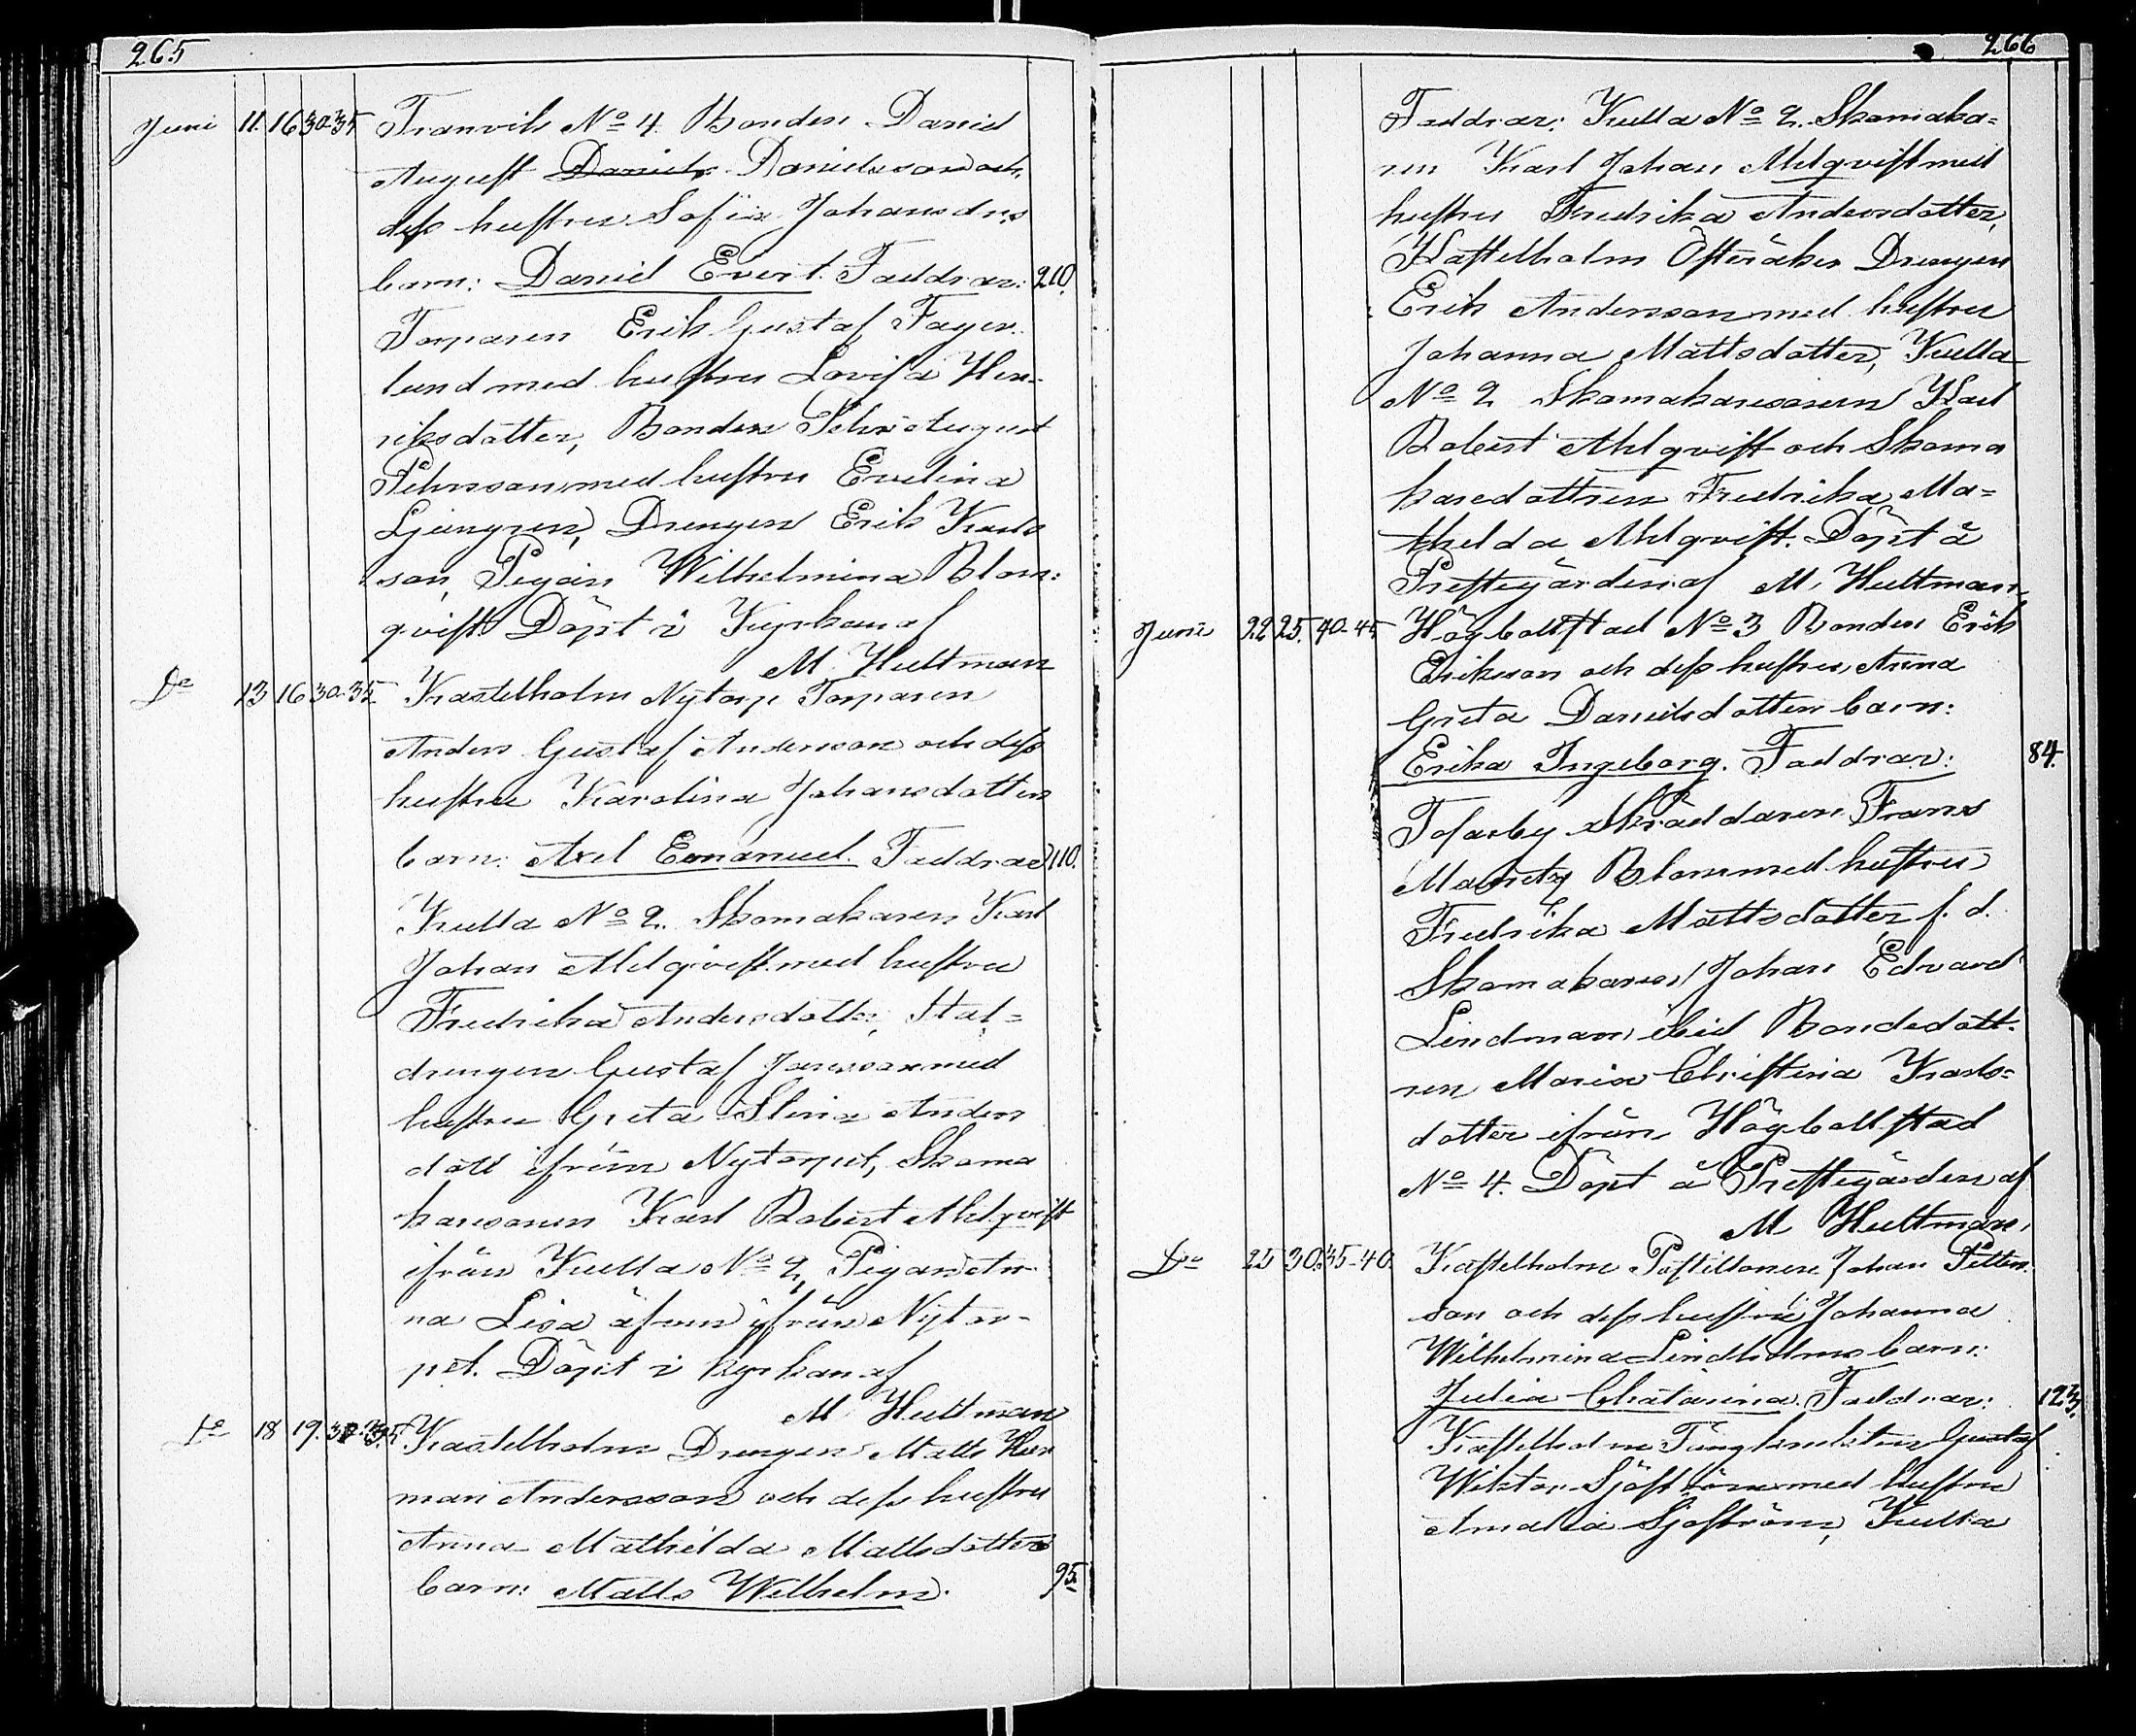 265
Juni 11. 16 30-35 Tranvik No 4 Bonden Daniel
August Daniels Danielsson och
dess hustru Sofia Johansdrs
barn: Daniel Evert. Faddrar: 210.
Torparen Erik Gustaf Fager-
lund med hustru Lovisa Hen-
riksdotter, Bonden Pehr August
Pehrsson med hustru Evelina
Ljungren, Drengen Erik Karls
son, Pigan Wilhelmina Blom:
qvist. Döpt i Kyrkan af
M. Hultman
Do 13 16 30-35 Kastelholm Nytorp Torparen
Anders Gustaf Andersson och dess
hustru Karolina Johansdotters
barn: Axel Emanuel. Faddrar 110.
Kulla No 2. Skomakaren Karl
Johan Ahlqvist med hustru
Fredrika Andersdotter, Stal-
drengen Gustaf Jansson med
hustru Greta Stina Anders
dott ifrån Nytorpet, Skoma
karesonen Karl Robert Ahlqvist
ifrån Kulla No 2, Pigan An-
na Lisa äfven ifrån Nytor-
pet. Döpt i kyrkan af
M. Hultman
Do 18 19. 30-35 Kastelholm Drengen Matts Her
man Andersson och dess hustru
Anna Mathilda Mattsdotters
barn: Matts Wilhelm. 95.
266
Faddrar: Kulla No 2. Skomaka-
ren Karl Johan Ahlqvist med
hustru Fredrika Andersdotter,
Kastelholm Österåker Drengen
Erik Andersson med hustru
Johanna Mattsdotter, Kulla
No 2 Skomakaresonen Karl
Robert Ahlqvist och Skoma
karedottren Fredrika Ma-
thilda Ahlqvist. Döpt å
Prestegården af M. Hultman
Juni 22 25. 40-45 Högbolstad No 3 Bonden Erik
Eriksson och dess hustru Anna
Greta Danielsdotters barn:
Erika Ingeborg. Faddrar: 84.
Tosarby Skräddaren Frans
Mauritz Blom med hustru
Fredrika Mattsdotter, f. d.
Skomakaren Johan Edvard
Lindman ibid Bondedott-
ren Maria Christina Karls-
dotter ifrån Högbolstad
No 4. Döpt å Prestegården af
M. Hultman,
Do 25 30. 35-40. Kastelholm Postiljonen Johan Petters
son och dess hustru Johanna
Wilhelmina Lindholms barn:
Julia Chatarina. Faddrar: 123.
Kastelholm Gustaf
Wiktor Sjöström med hustru
Amalia Sjöström, Kulla